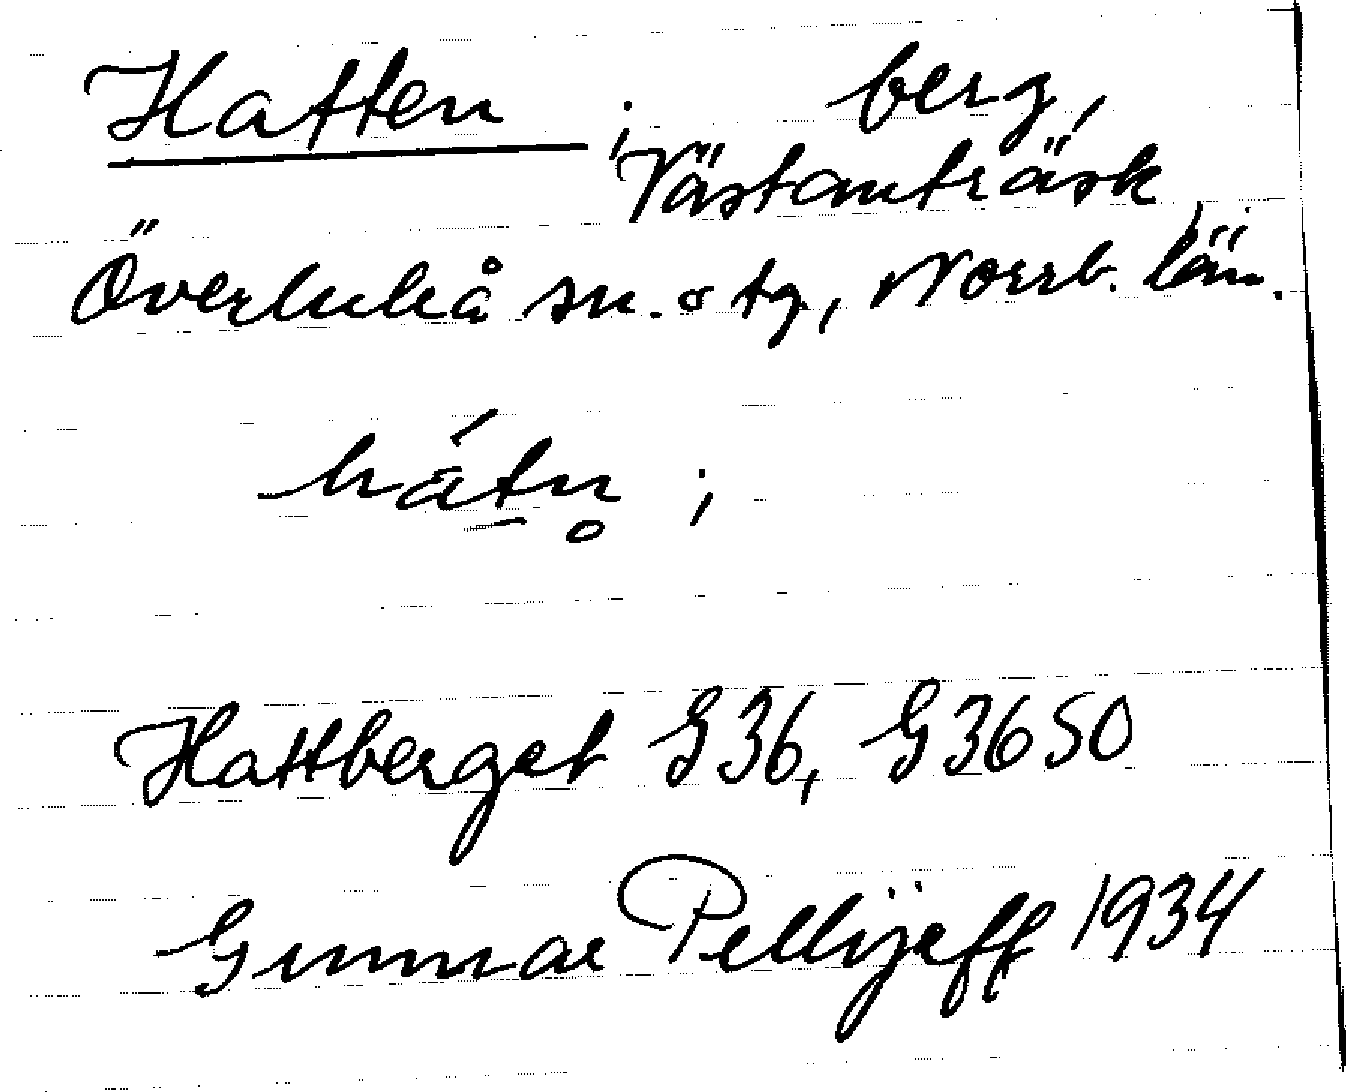 Hatten ; berg,
Västanträsk,
Överluleå sn. o tg, Norrb. län.
hátn̥ ;
Hattberget G36, G36 SO
Gunnar Pellijeff 1934